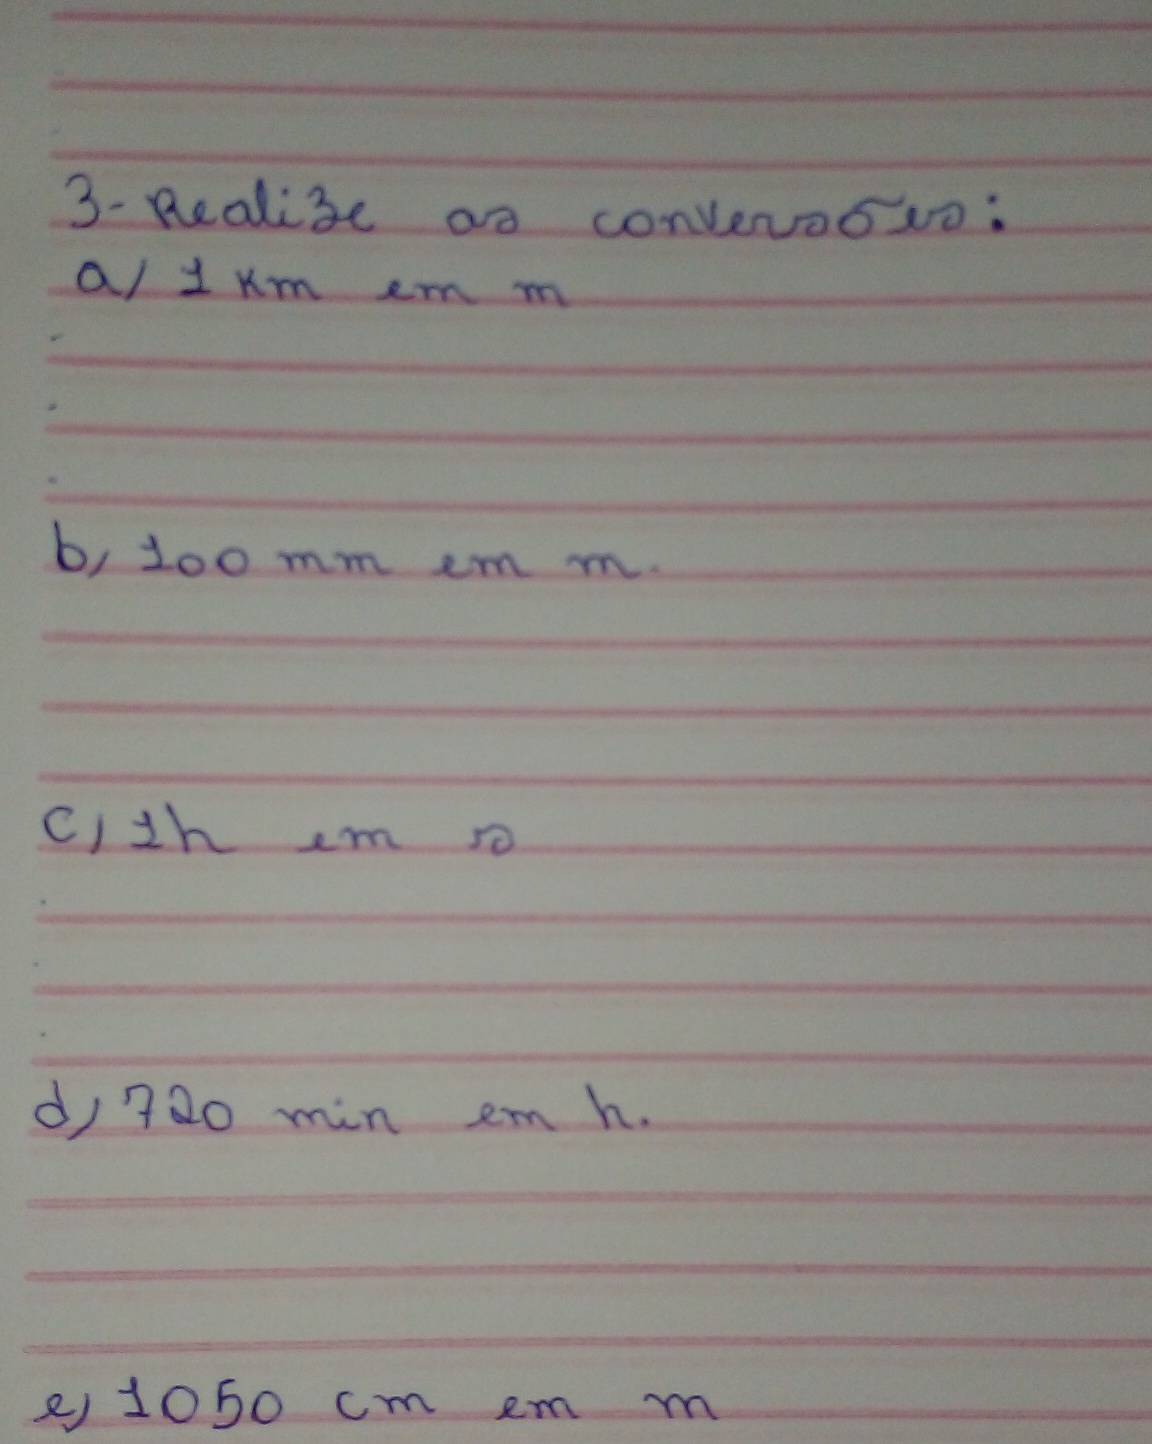 3- Realize as conversões:
a) 1 km em m
b) 100 mm em m.
c) 1h em s
d) 720 min em h.
e) 1050 cm em m